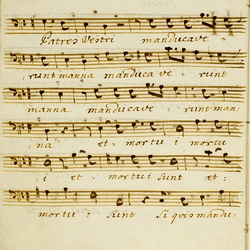 Patres Vestri manducave
runt manna manducave : runt
manna manducave : runt man:
na et : mortui mortu
i et : mortui sunt et :
mortu i sunt Si quis mandu: